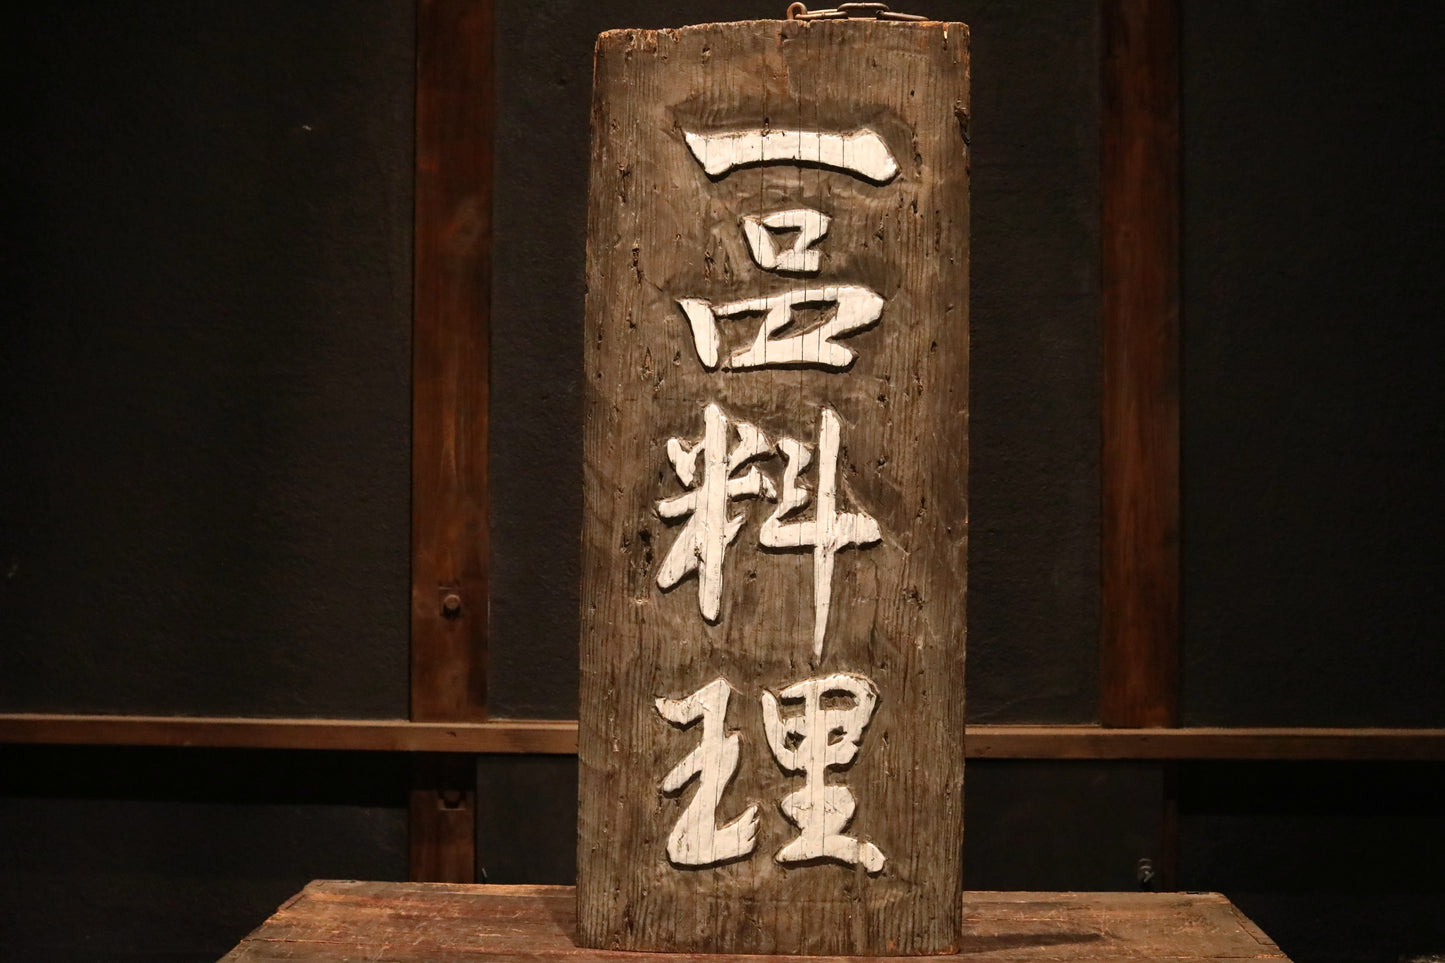 一品料理